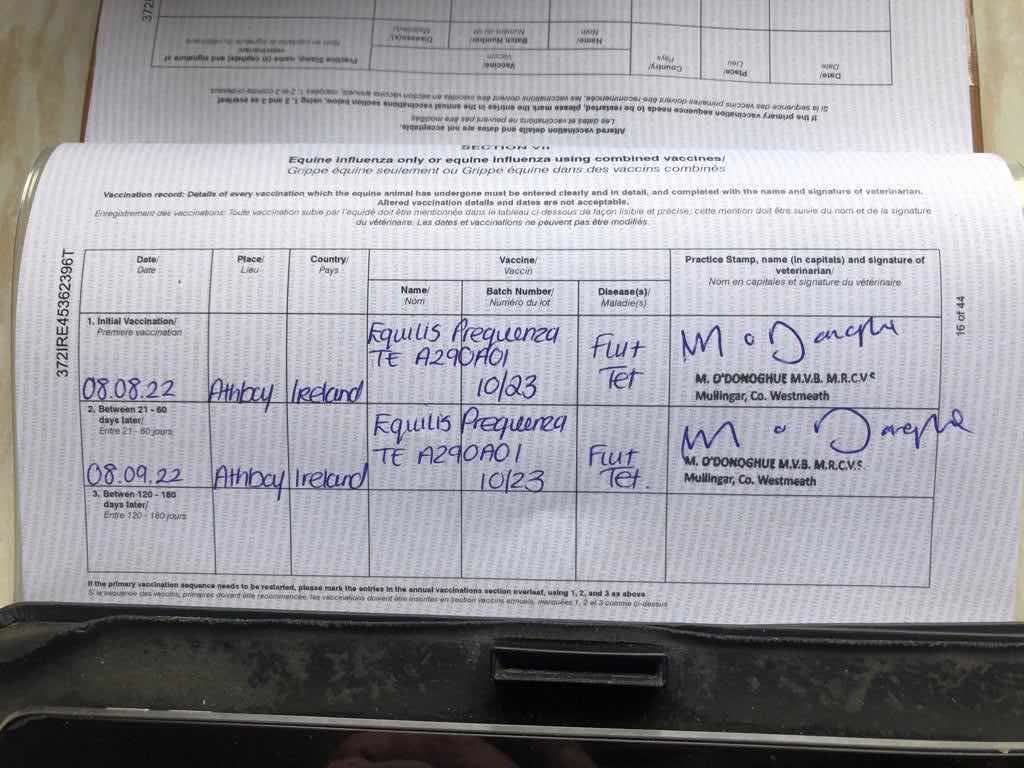 Practice Stamp, name (in capitals) and signature of
veterinarian/
Nom en capitales et signature du vétérinaire
Vaccine/
Vaccin
Disease(s)/
Maladie(s)
Batch Number/
Numéro du lot
Name/
Nom
Country/
Pays
Place/
Lieu
Date/
Date
If the primary vaccination sequence needs to be restarted, please mark the entries in the annual vaccinations section below, using 1, 2 and 3 as overleaf
Si la séquence des vaccins primaires doivent être recommencée, les vaccinations doivent être
Altered vaccination details and dates are not acceptable.
Les dates et vaccinations ne peuvent pas être modifiés
SECTION VII
Equine influenza only or equine influenza using combined vaccines/
Grippe équine seulement ou Grippe équine dans des vaccins combinés
Vaccination record: Details of every vaccination which the equine animal has undergone must be entered clearly and in detail, and completed with the name and signature of veterinarian.
Altered vaccination details and dates are not acceptable.
Enregistrement des vaccinations: Toute vaccination subie par l'équidé doit être mentionnée dans le tableau ci-dessous de façon lisible et précise; cette mention doit être suivie du nom et de la signature
du vétérinaire. Les dates et vaccinations ne peuvent pas être modifiés.
372IRE45362396T
16 of 44
Date/ Place/ Country/ Vaccine/ Practice Stamp, name (in capitals) and signature of
Date Lieu Pays Vaccin veterinarian/
Nom en capitales et signature du vétérinaire
Name/ Batch Number/ Disease(s)/
Nom Numéro du lot Maladie(s)
1. Initial Vaccination/
Premiere vaccination
Equilis Prequenza
TE A290A01
Flu+
Tet
08.08.22 Athboy Ireland 10/23
M O'Donoghue
M. O'DONOGHUE M.V.B. M.R.C.V
Mullingar, Co. Westmeath
2. Between 21 - 60
days later/
Entre 21 - 60 jours
Equilis Prequenza
TE A290A01
Flu+
Tet.
08.09.22 Athboy Ireland 10/23
M O'Donoghue
M. O'DONOGHUE M.V.B. M.R.C.V.S.
Mullingar, Co. Westmeath
3. Betwen 120 - 180
days later/
Entre 120 - 180 jours
If the primary vaccination sequence needs to be restarted, please mark the entries in the annual vaccinations section overleaf, using 1, 2, and 3 as above
Si la séquence des vaccins, primaires doivent être recommencée, les vaccinations doivent être inscrites en section vaccins annuels, marquées 1, 2 et 3 comme ci-dessus